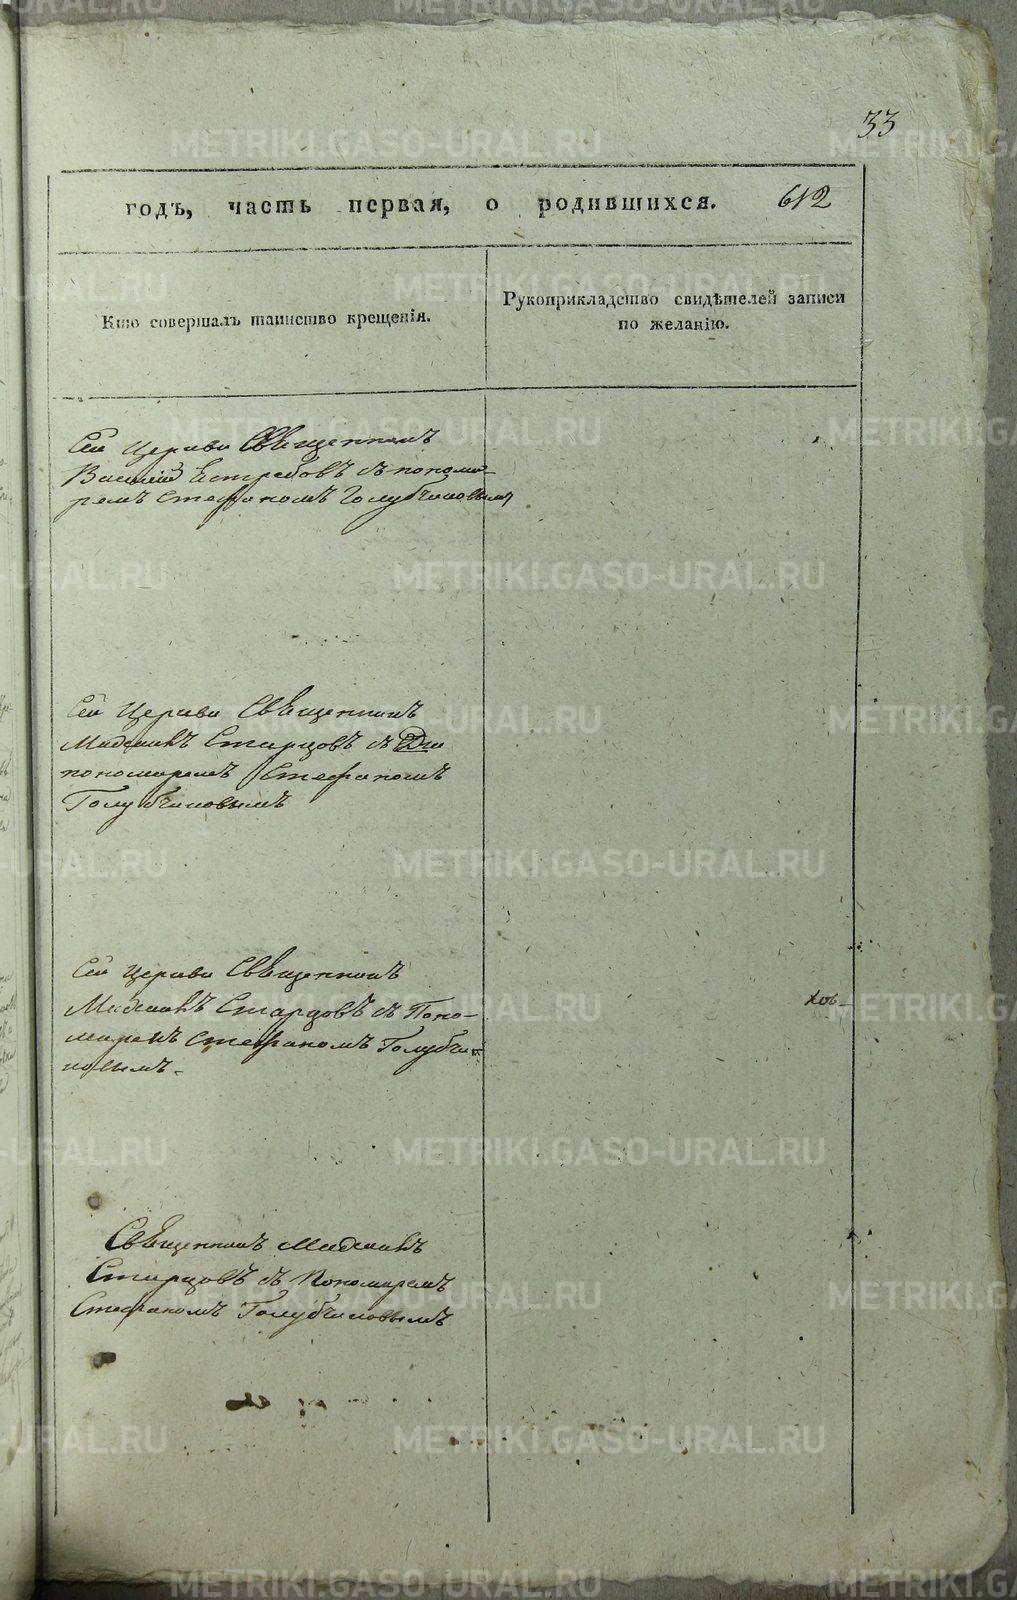 33
годъ, часть первая, о родившихся. 612
Кто совершалъ таинство крещенія.
Рукоприкладство свидѣтелей записи
по желанію.
Сей Церкви Священникъ
Василий Ястребовъ съ понома-
ремъ Стефаномъ Голубчиковымъ
Сей Церкви Священникъ
Старцовъ съ
пономаремъ Стефаномъ
Голубчиковымъ
Сей Церкви Священникъ
Старцовъ съ Поно-
маремъ Стефаномъ Голубчи-
ковымъ.
Священникъ
Старцовъ съ Пономаремъ
Стефаномъ Голубчиковымъ
METRIKI.GASO-URAL.RU